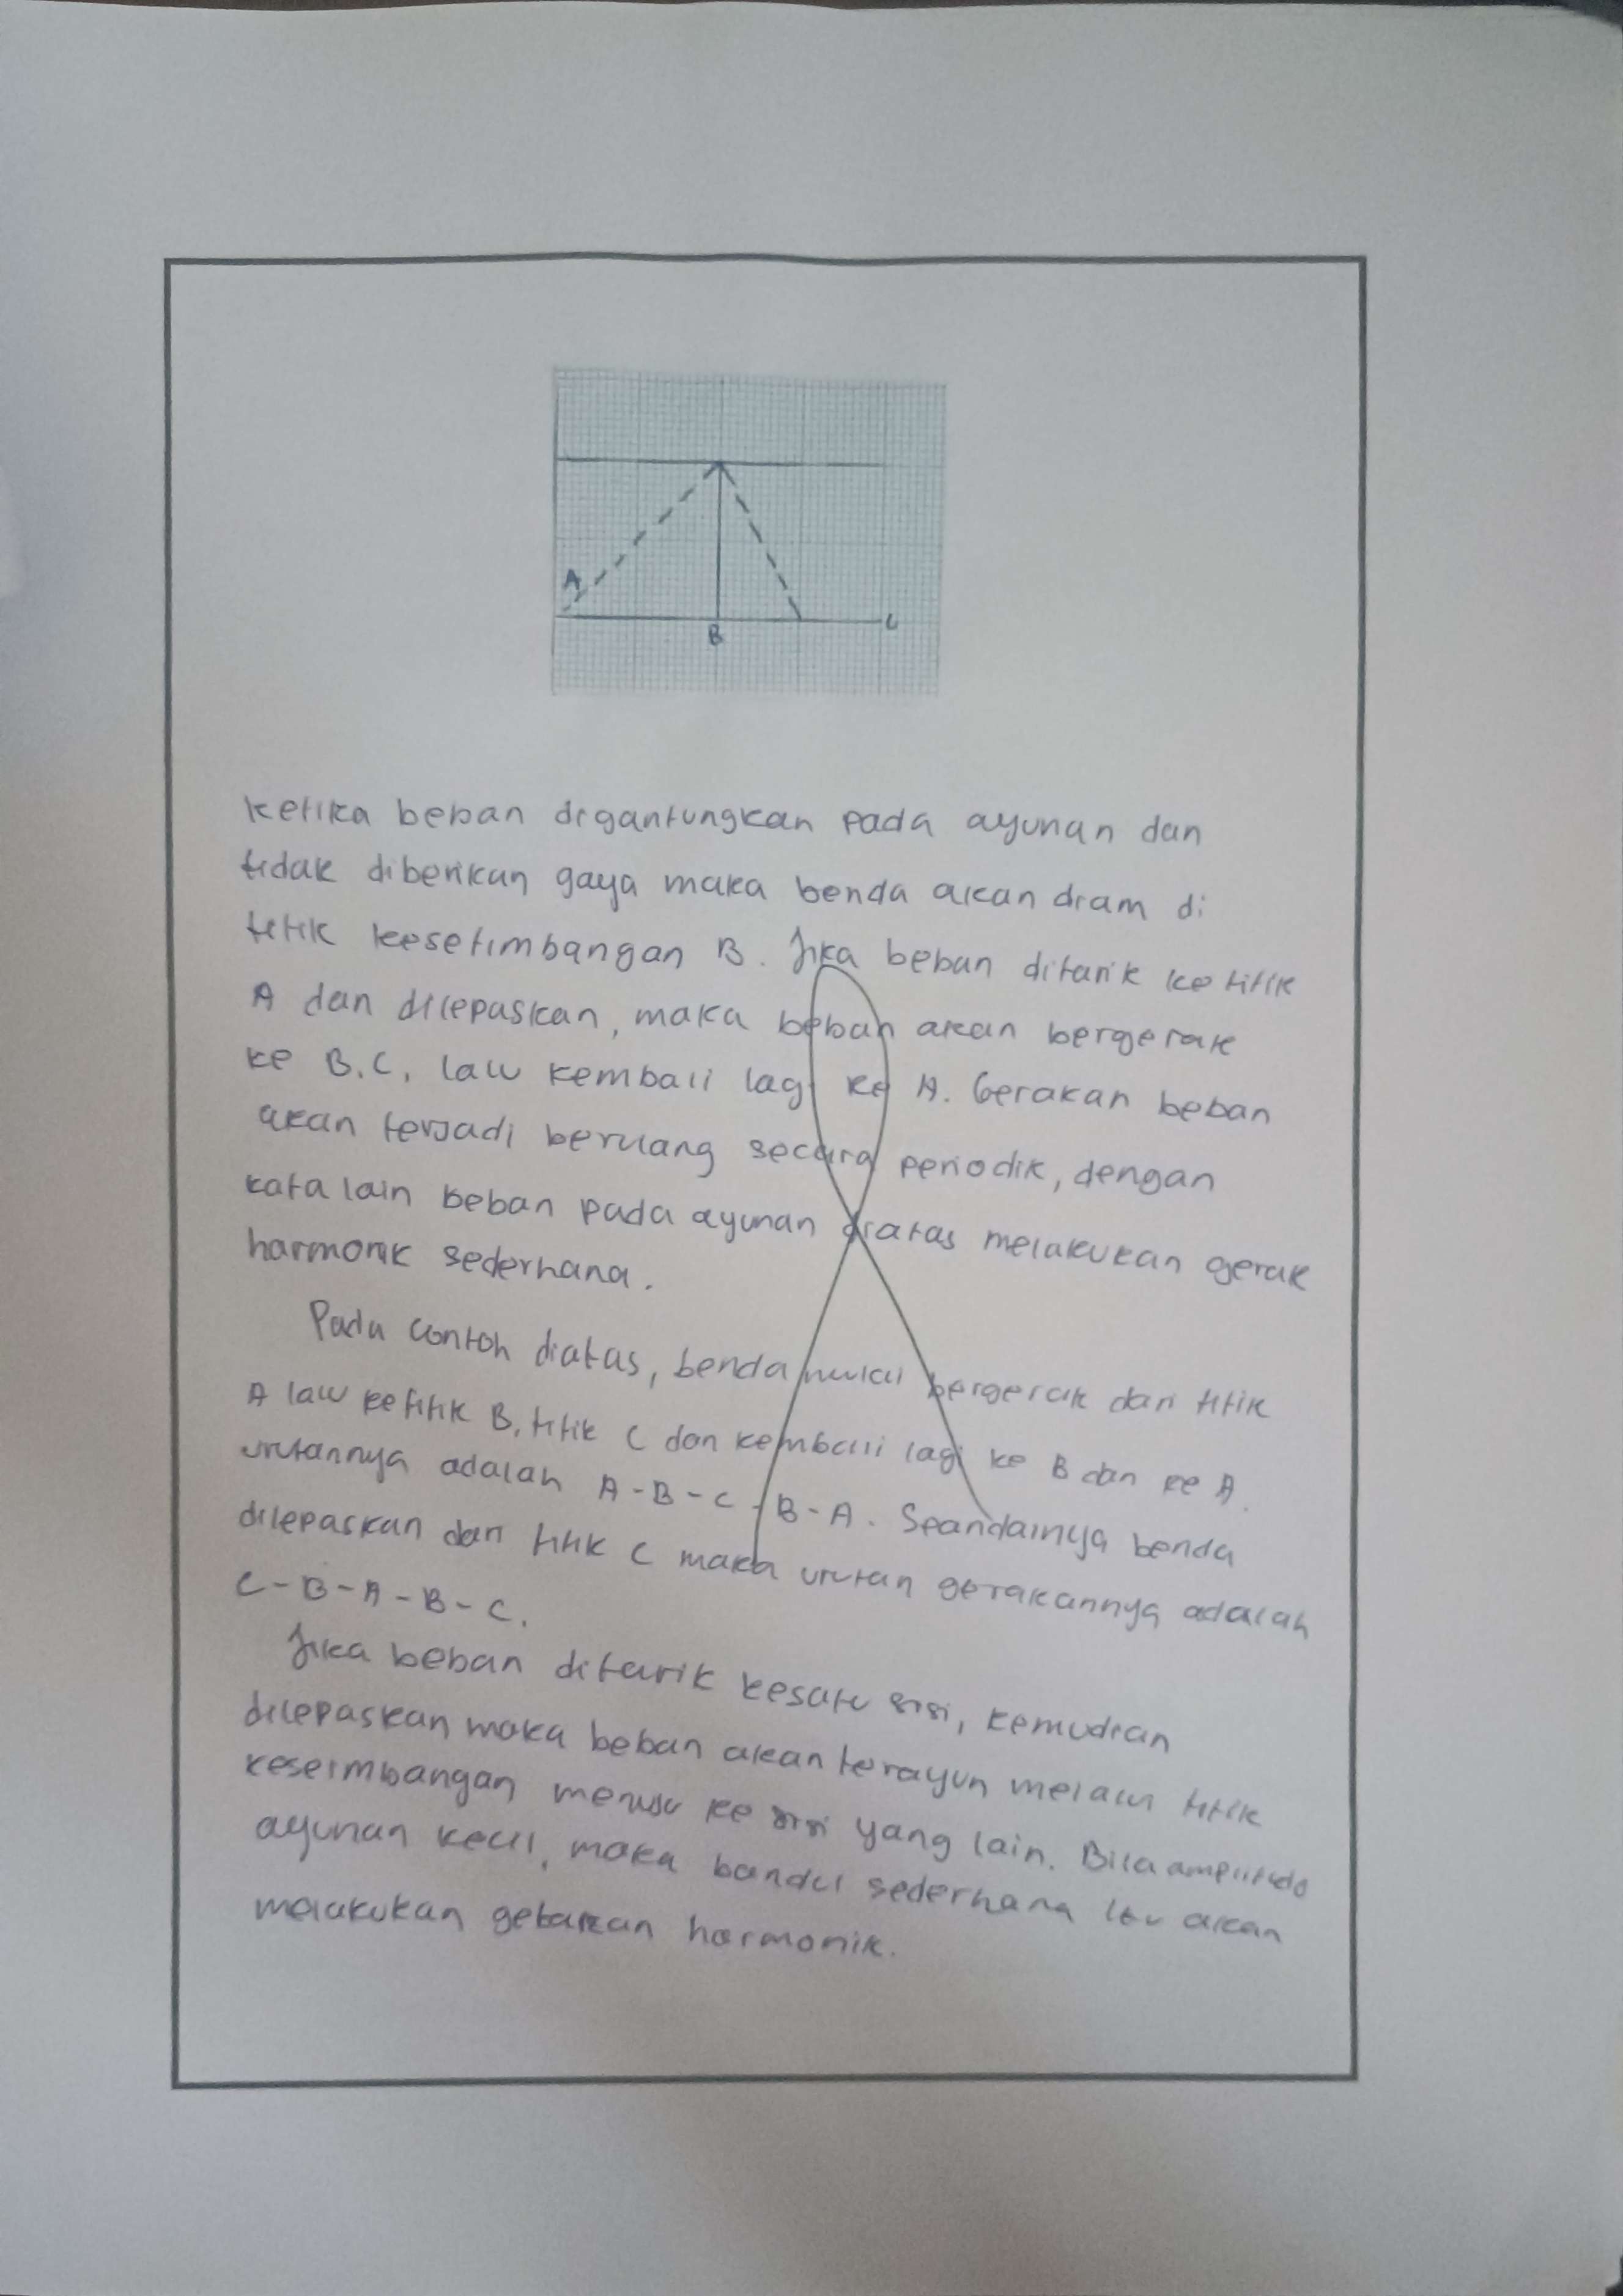 A
B
C
Ketika beban digantungkan pada ayunan dan
tidak diberikan gaya maka benda akan diam di
titik kesetimbangan B. Jika beban ditarik ke titik
A dan dilepaskan, maka beban akan bergerak
ke B.C, lalu kembali lagi ke A. Gerakan beban
akan terjadi berulang secara periodik, dengan
kata lain beban pada ayunan diatas melakukan gerak
harmonik sederhana.
Pada contoh diatas, benda mulai bergerak dari titik
A lalu ke titik B, titik C dan kembali lagi ke B dan ke A.
urutannya adalah A-B-C-B-A. Seandainya benda
dilepaskan dari titik C maka urutan gerakannya adalah
C-B-A-B-C.
Jika beban ditarik kesatu sisi, kemudian
dilepaskan maka beban akan terayun melalui titik
keseimbangan menuju ke sisi yang lain. Bila amplitudo
ayunan kecil, maka bandul sederhana itu akan
melakukan getaran harmonik.